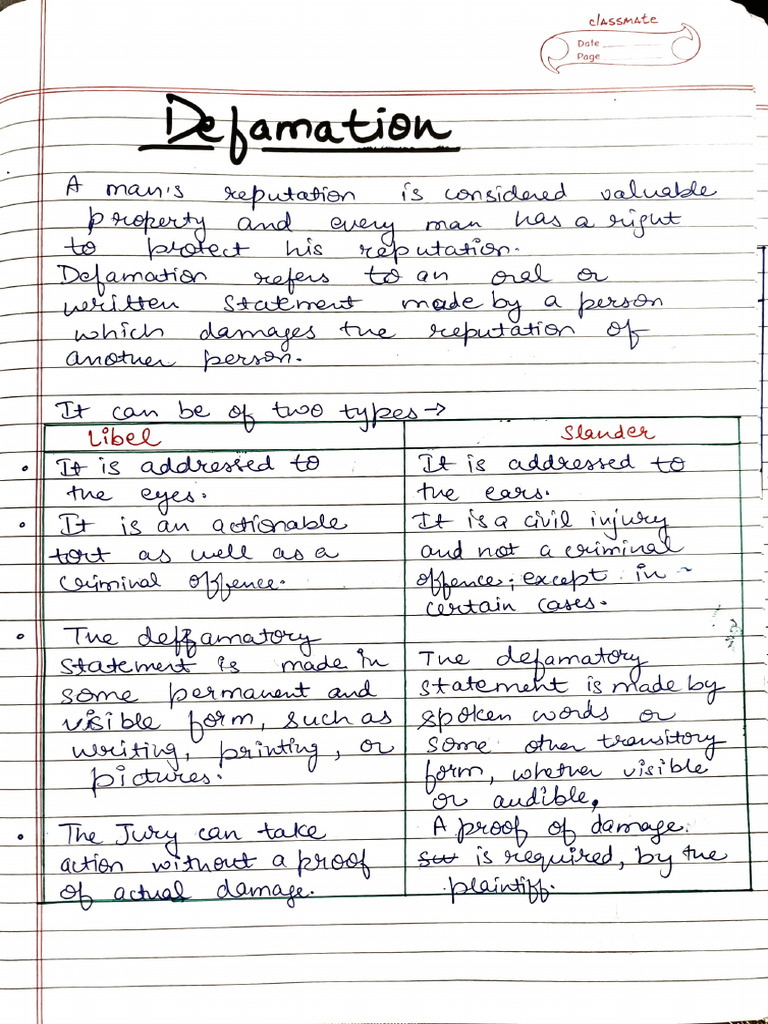 classmate
Date
Page
Defamation
A man's reputation is considered valuable
property and every man has a right
to protect his reputation.
Defamation refers to an oral or
written statement made by a person
which damages the reputation of
another person.
It can be of two types →
Libel
• It is addressed to
the eyes.
• It is an actionable
tort as well as a
criminal offence.
• The deffamatory
statement is made in
some permanent and
visible form, such as
writing, printing, or
pictures.
• The Jury can take
action without a proof
of actual damage.
Slander
It is addressed to
the ears.
It is a civil injury
and not a criminal
offence; except in
certain cases.
The defamatory
statement is made by
spoken words or
some other transitory
form, whether visible
or audible,
A proof of damage.
is required, by the
plaintiff.